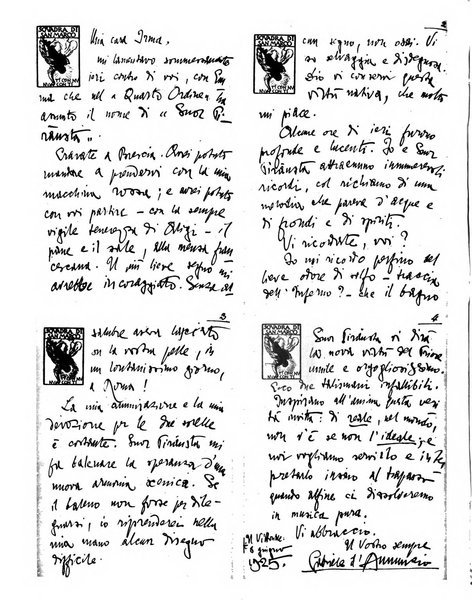 SQVADRA DI
SAN MARCO
Mia cara Irma,
mi lamentavo sommessamente
ieri sera di voi, con Em
ma che nel « Quarto Ordine» ha
assunto il nome di « Suor Pi
rausta ».
Eravate a Brescia. Avrei potuto
mandare a prendervi con la mia
macchina rossa; e avrei potuto
con voi partire – con la sempre
vigile tenerezza di – il
pane e il sale, alla mensa fran
cescana. Il più lieve segno mi
avrebbe incoraggiato. Senza al
2
SQVADRA DI
SAN MARCO
cun segno, non osai. Vi
so selvaggia e disdegnosa.
Dio vi conservi questa
virtù nativa, che molto
mi piace.
Alcune ore di ieri furono
profonde e lucenti. Io e Suor
Pirausta attraemmo innumerevoli
ricordi, col richiamo di una
melodia che pareva d'acque e
di frondi e di spiriti.
Vi ricordate, voi?
Io mi ricordo perfino del
lieve odore di zolfo – traccia
dell'Inferno? – che il bagno
3
SQVADRA DI
SAN MARCO
salubre aveva lasciato
su la vostra pelle, in
un lontanissimo giorno,
a Roma!
La mia ammirazione e la mia
devozione per le due sorelle
è costante. Suor Pirausta mi
fa balenare la speranza d'una
nuova armonia scenica. Se
il baleno non fosse per dile
guarsi, io riprenderei nella
mia mano alcun disegno
difficile.
4
SQVADRA DI
SAN MARCO
Suor Pirausta vi dirà
la nova virtù del Priore
umile e orgogliosissimo.
Ecco due talismani infallibili.
Inspirano all'anima questa veri
tà invitta: di reale, nel mondo,
non v'è se non l'ideale; e
noi vogliamo servirlo e inter
pretarlo insino al trapasso
quando alfine ci dissolveremo
in musica pura.
Vi abbraccio.
Il Vostro sempre
Gabriele d'Annunzio
Il Vittoriale:
6 giugno
1925.